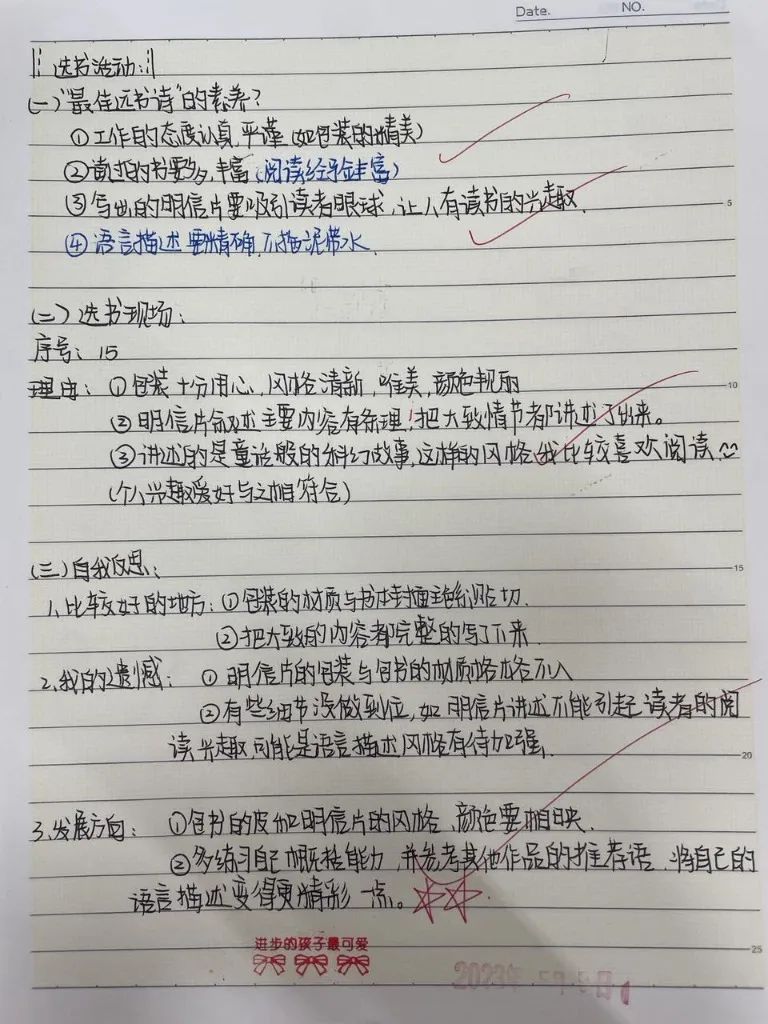 Date.
NO.
选书活动:
(一)"最佳选书诗"的素养?
①工作的态度认真,严谨(如包装的精美)
②尝过的书要多,丰富(阅读经验丰富)
③写出的明信片要吸引读者眼球,让人有读书的兴趣.
5
④语言描述要精确,不拖泥带水.
(二)选书现场:
序号:15
理由:①包装十分用心,风格清新,唯美,颜色靓丽
10
②明信片叙述主要内容有条理!把大致情节都讲述了出来。
③讲述的是童话般的科幻故事,这样的风格我比较喜欢阅读
(个人兴趣爱好与之相符合)
(三)自我反思:
15
1.比较好的地方:①包装的材质与书本封面主题贴切.
②把大致的内容都完整的写了下来
2.我的遗憾:①明信片的包装与包书的材质格格不入
②有些细节没做到位,如明信片讲述不能引起读者的阅
读兴趣,可能是语言描述风格有待加强.
20
3.发展方向:①包书的皮和明信片的风格、颜色要相映.
②多练习自己概括能力,并参考其他作品的推荐语,将自己的
语言描述变得更精彩一点。
进步的孩子最可爱
25
2023年